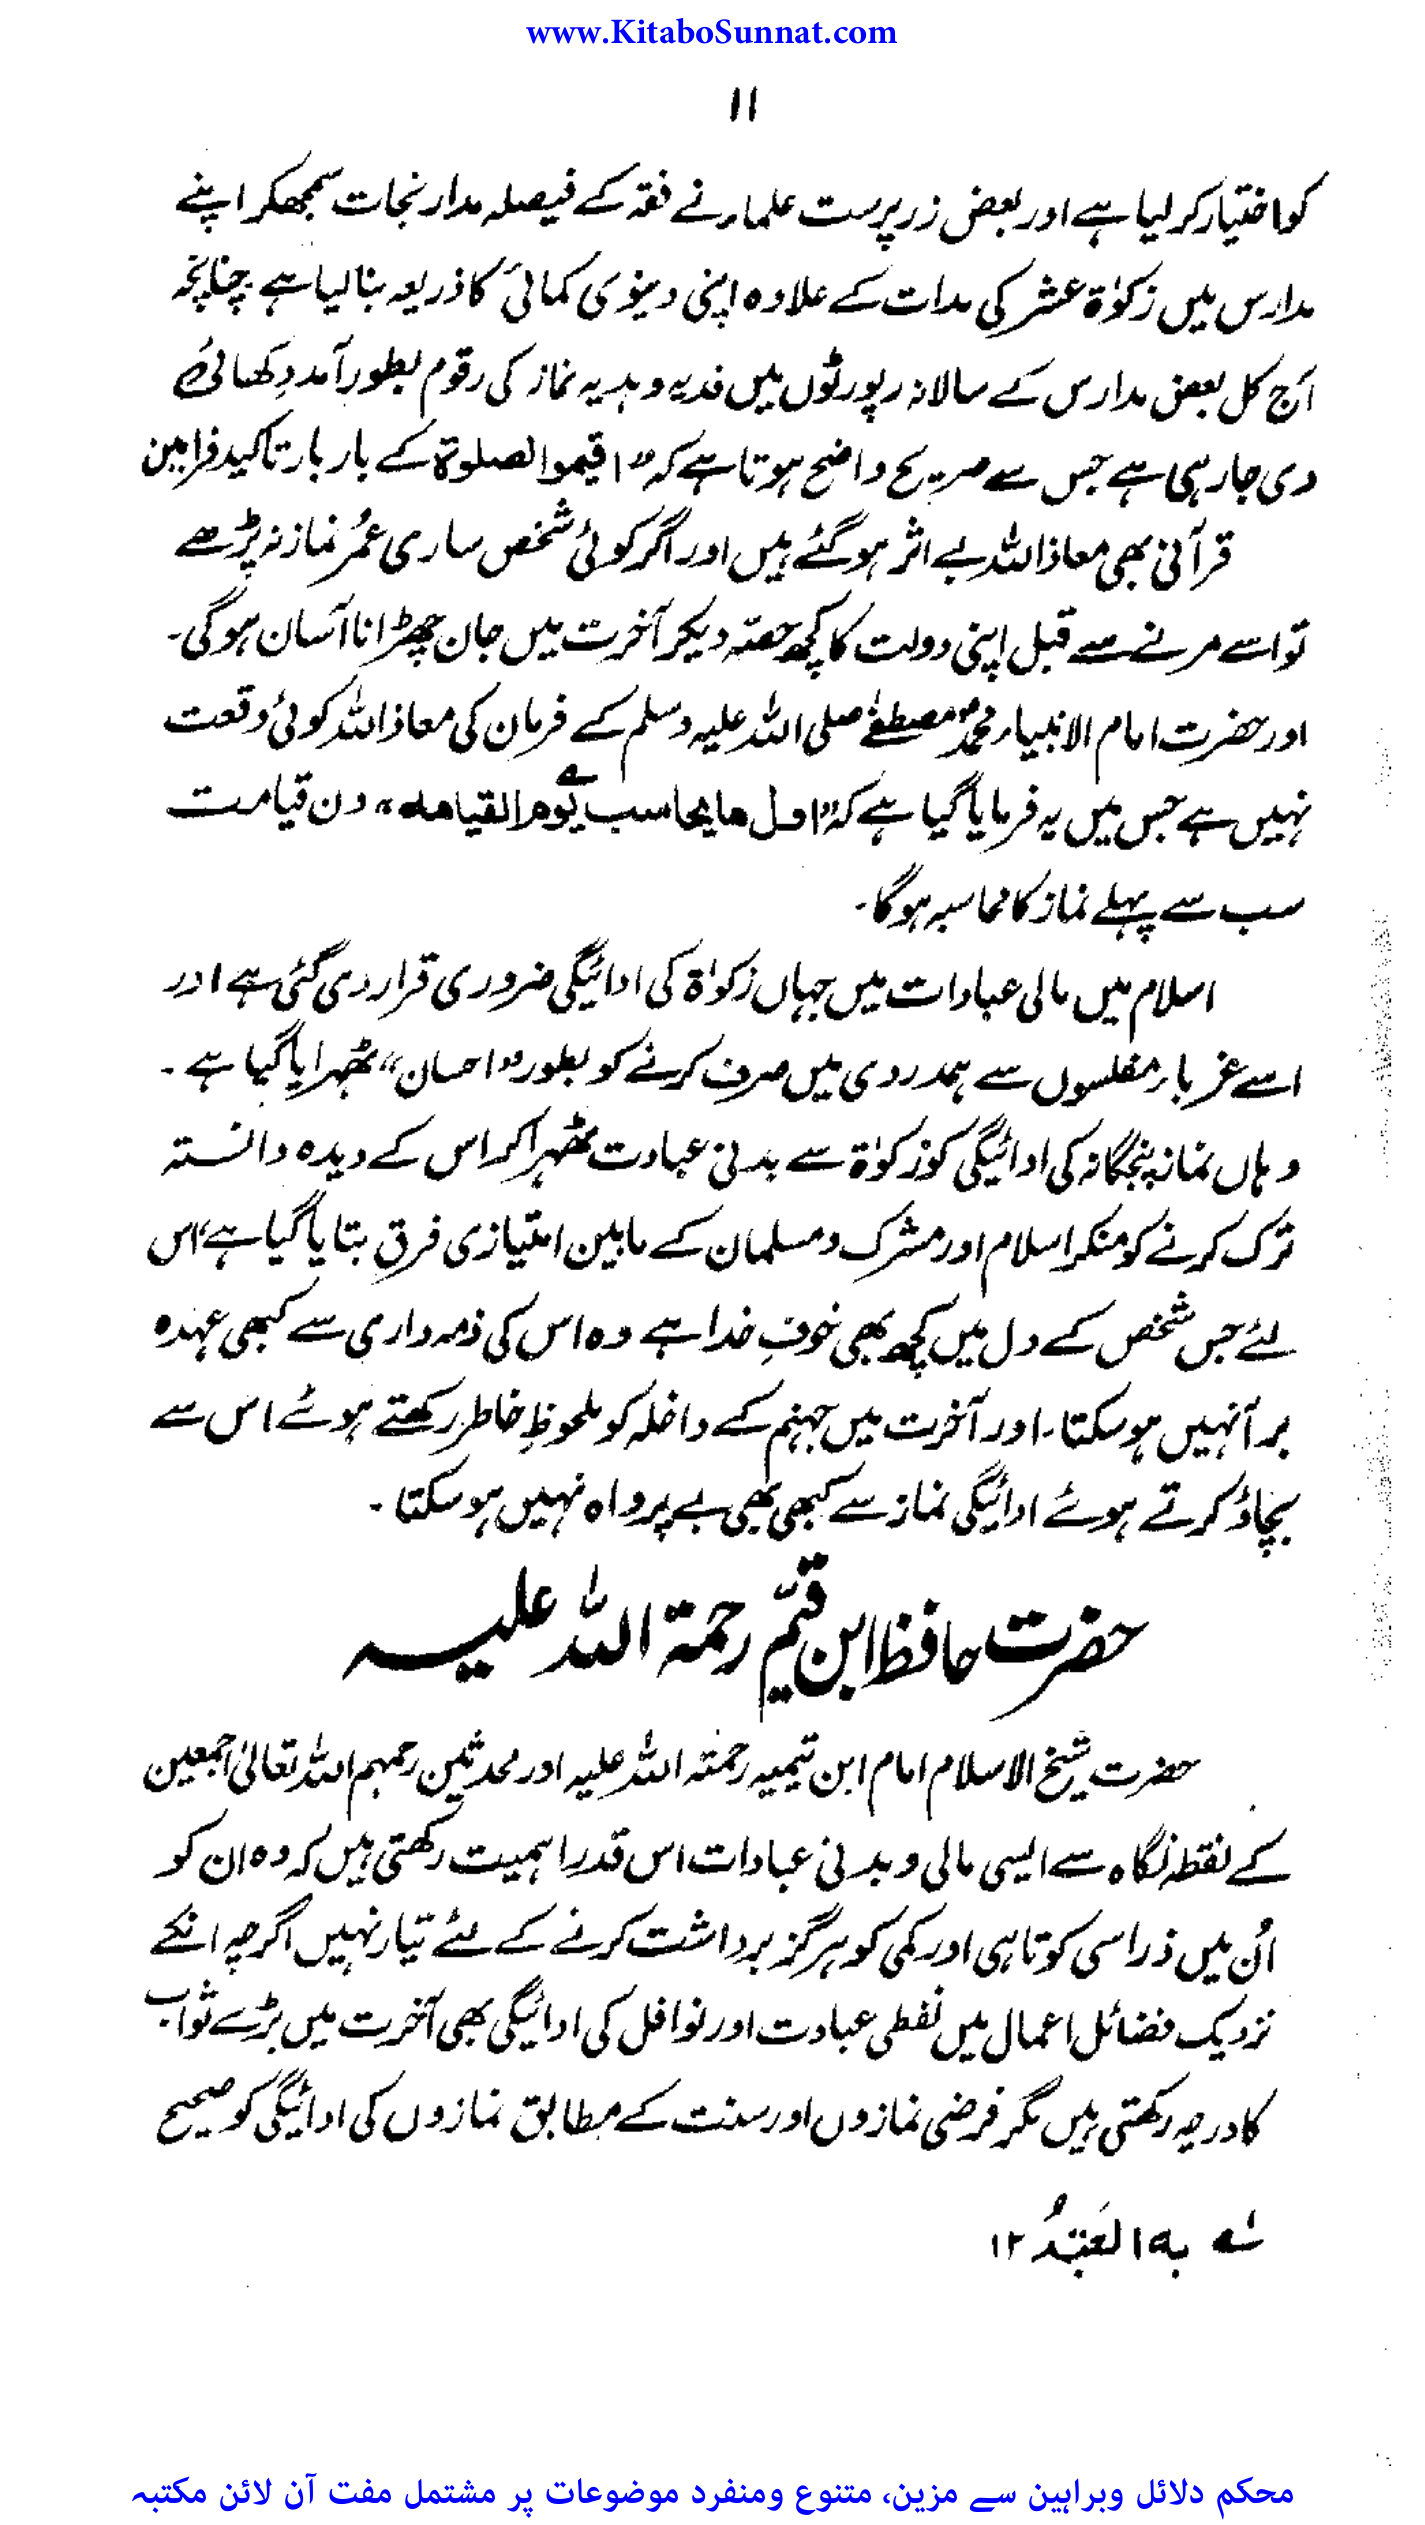 www.KitaboSunnat.com
۱۱
کو اختیار کر لیا ہے اور بعض زرپرست علماء نے فقہ کے فیصلہ مدار نجات سمجھکر اپنے
مدارس میں زکوٰۃ عشر کی مدات کے علاوہ اپنی دینوی کمائی کا ذریعہ بنا لیا ہے چنانچہ
آج کل بعض مدارس کے سالانہ رپورٹوں میں فدیہ وہدیہ نماز کی رقوم بطور آمد دِکھائی
دی جا رہی ہے جس سے صریح واضح ہوتا ہے کہ "اقیموا الصلوۃ کے بار بار تاکید فرامین
قرآنی بھی معاذاللہ بے اثر ہو گئے ہیں اور اگر کوئی شخص ساری عمُر نماز نہ پڑھے
تو اسے مرنے سے قبل اپنی دولت کا کچھ حصّہ دیکر آخرت میں جان چھڑانا آسان ہوگی۔
اور حضرت امام الانبیاء محمدؐ مصطفےٰ صلی اللہ علیہ وسلم کے فرمان کی معاذاللہ کوئی وقعت
نہیں ہے جس میں یہ فرمایا گیا ہے کہ "اول ما یحاسب یوم القیامہ" دن قیامت
سب سے پہلے نماز کا محاسبہ ہوگا۔
اسلام میں مالی عبادات میں جہاں زکوٰۃ کی ادائیگی ضروری قرار دی گئی ہے اور
اسے غرباء مفلسوں سے ہمدردی میں صرف کرنے کو بطور "احسان" ٹھہرایا گیا ہے ۔
وہاں نماز پنجگانہ کی ادائیگی کو زکوٰۃ سے بدنی عبادت ٹھہرا کر اس کے دیدہ دانستہ
ترک کرنے کو منکر اسلام اور مشرک ومسلمان کے مابین امتیازی فرق بتایا گیا ہے، اس
لئے جس شخص کے دل میں کچھ بھی خوفِ خدا ہے وہ اس کی ذمہ داری سے کبھی عہدہ
برآ نہیں ہو سکتا۔ اور آخرت میں جہنم کے داخلہ کو ملحوظِ خاطر رکھتے ہوئے اس سے
بچاؤ کرتے ہوئے ادائیگی نماز سے کبھی بھی بے پرواہ نہیں ہو سکتا ۔
حضرت حافظ ابن قیّم رحمۃ اللہ علیہ
حضرت شیخ الاسلام امام ابن تیمیہ رحمتہ اللہ علیہ اور محدثین رحمہم اللہ تعالیٰ اجمعین
کے نقطہ نگاہ سے ایسی مالی و بدنی عبادات اس قدر اہمیت رکھتی ہیں کہ وہ ان کو
اُن میں ذرا سی کوتاہی اور کمی کو ہرگز برداشت کرنے کے لئے تیار نہیں اگرچہ انکے
نزدیک فضائل اعمال میں نفلی عبادت اور نوافل کی ادائیگی بھی آخرت میں بڑے ثواب
کا درجہ رکھتی ہیں مگر فرضی نمازوں اور سنت کے مطابق نمازوں کی ادائیگی کو صحیح
لہ بہ العَبْدُ ۱۲
محکم دلائل وبراہین سے مزین، متنوع ومنفرد موضوعات پر مشتمل مفت آن لائن مکتبہ